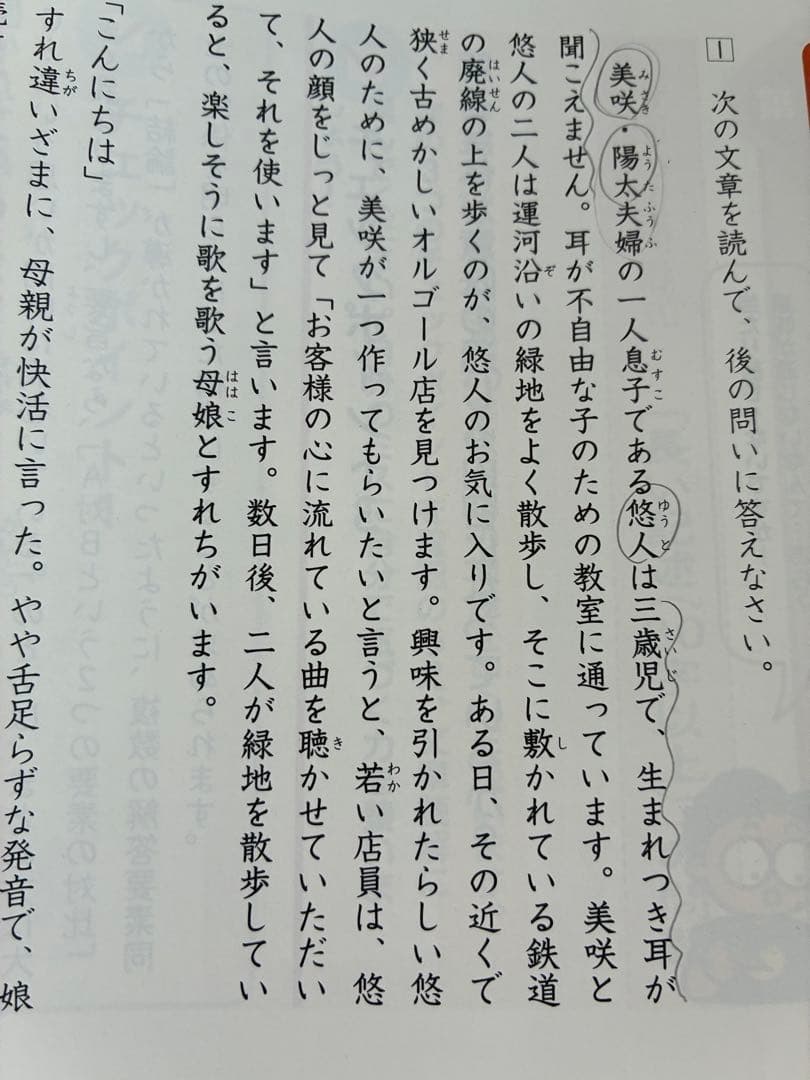 1 次の文章を読んで、後の問いに答えなさい。
美咲・陽太夫婦の一人息子である悠人は三歳児で、生まれつき耳が
聞こえません。耳が不自由な子のための教室に通っています。美咲と
悠人の二人は運河沿いの緑地をよく散歩し、そこに敷かれている鉄道
の廃線の上を歩くのが、悠人のお気に入りです。ある日、その近くで
狭く古めかしいオルゴール店を見つけます。興味を引かれたらしい悠
人のために、美咲が一つ作ってもらいたいと言うと、若い店員は、悠
人の顔をじっと見て「お客様の心に流れている曲を聴かせていただい
て、それを使います」と言います。数日後、二人が緑地を散歩してい
ると、楽しそうに歌を歌う母娘とすれちがいます。
「こんにちは」
すれ違いざまに、母親が快活に言った。やや舌足らずな発音で、娘